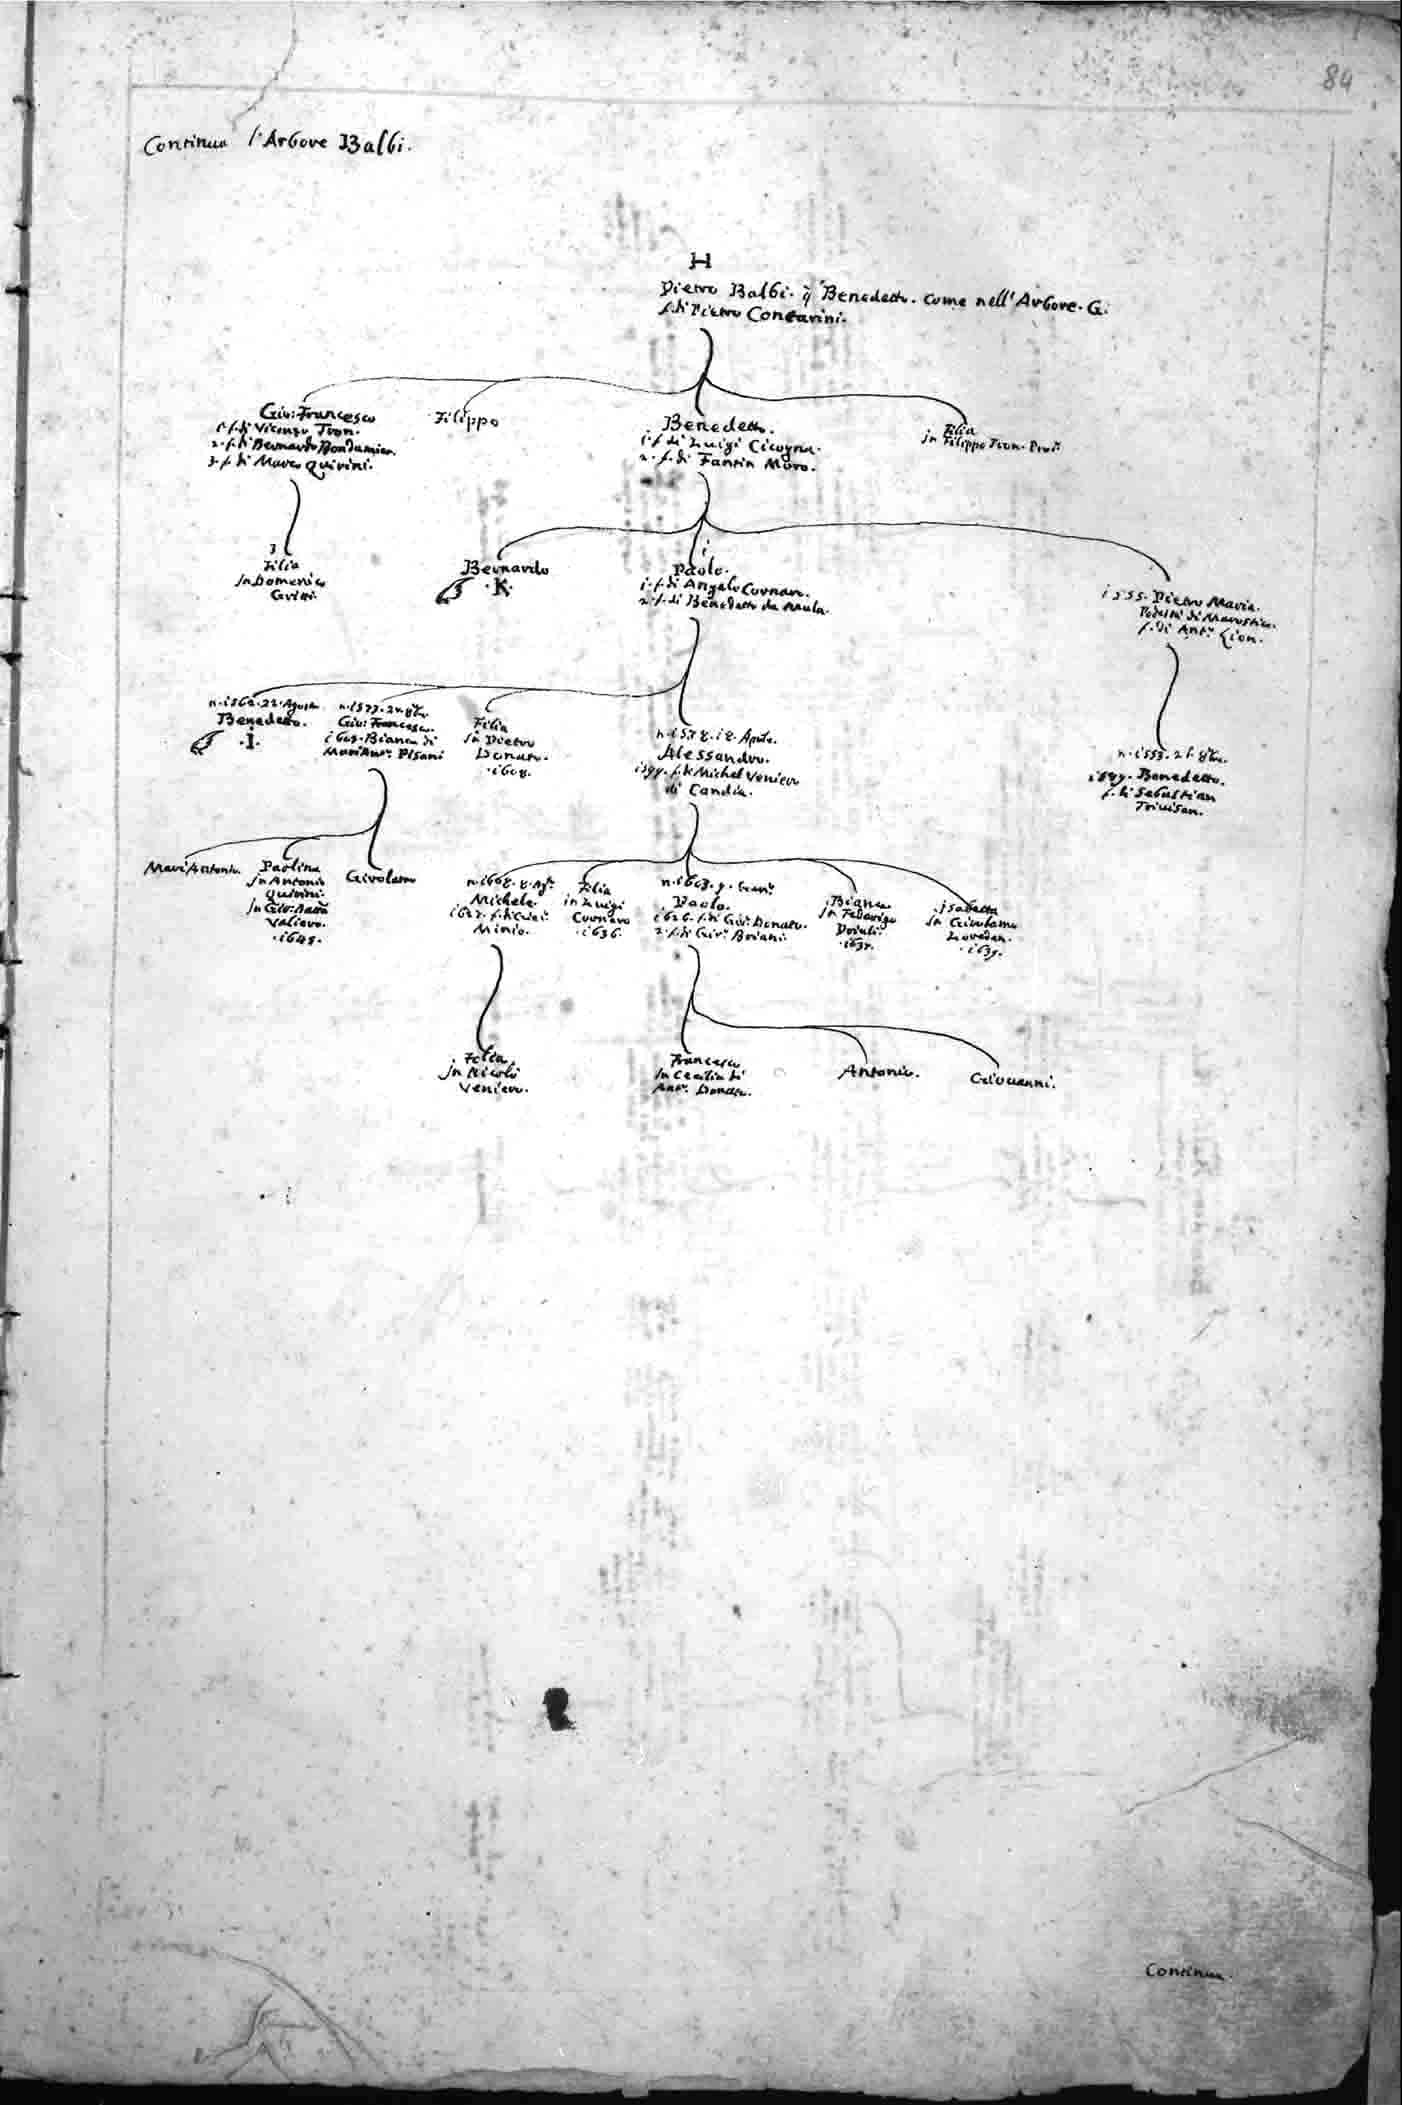 84
Continua l'Arbore Balbi.
H
Pietro Balbi. q̃ Benedetto. come nell'Arbore. G.
f. di Pietro Contarini.
Gio: Francesco
1. f. di Vicenzo Tron.
2. f. di Bernardo Bondumier.
3. f. di Marco Querini.
Filippo
Benedetto.
i. f. di Luigi Cicogna.
2. f. di Fantin Moro.
Filia
in Filippo Tron. Procr.
3
Filia
in Domenico
Gritti.
Bernardo
.K.
i
Paolo.
i. f. di Angelo Cornaro.
2. f. di Benedetto da Mula.
i555. Pietro Maria.
Podestà di Marostica.
f. di Ant.o Lion.
n. i562. 22. Agosto
Benedetto.
.I.
n. i577. 24. 8bre
Gio: Francesco.
i609. Bianca di
Mari'Ant.o Pisani
Filia
in Pietro
Donato.
.i608.
n. i578. i8. Aprile.
Alessandro.
i599. f. di Michel Venier
di Candia.
n. i553. 21. 8bre.
i599. Benedetto.
f. di Sebastian
Trivisan.
Mari'Antonio.
Paolina
in Antonio
Querini.
in Gio: Batta
Valiero.
.i645.
Girolamo
n. i602. 8. Ag.o
Michele.
i627. f. di
Minio.
Filia
in Luigi
Cornero
.i636.
n. i603. 9. Genr.o
Paolo.
i626. f. di Gio: Donato.
2. f. di Gir.o Briani.
Bianca
in Federigo
Priuli.
.i637.
.isabetta
in Girolamo
Loredan.
.i639.
Filia
in Nicolò
Venier.
Francesco
in Cecilia di
Ant.o Donato.
Antonio.
Giovanni.
Continua.